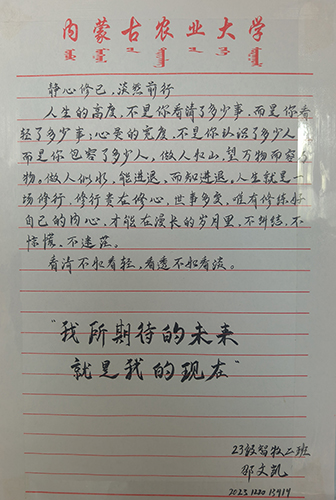 内蒙古农业大学
静心修己，淡然前行
人生的高度，不是你看清了多少事，而是你看
轻了多少事，心灵的宽度，不是你认识了多少人，
而是你包容了多少人，做人如山，望万物而容万
物。做人似水，能进退，而知进退。人生就是一
场修行，修行贵在修心，世事多变，唯有修炼好
自己的内心，才能在漫长的岁月里，不纠结、不
惊慌、不迷茫。
看清不如看轻，看透不如看淡。
“我所期待的未来
就是我的现在”
23级智牧二班
邵文凯